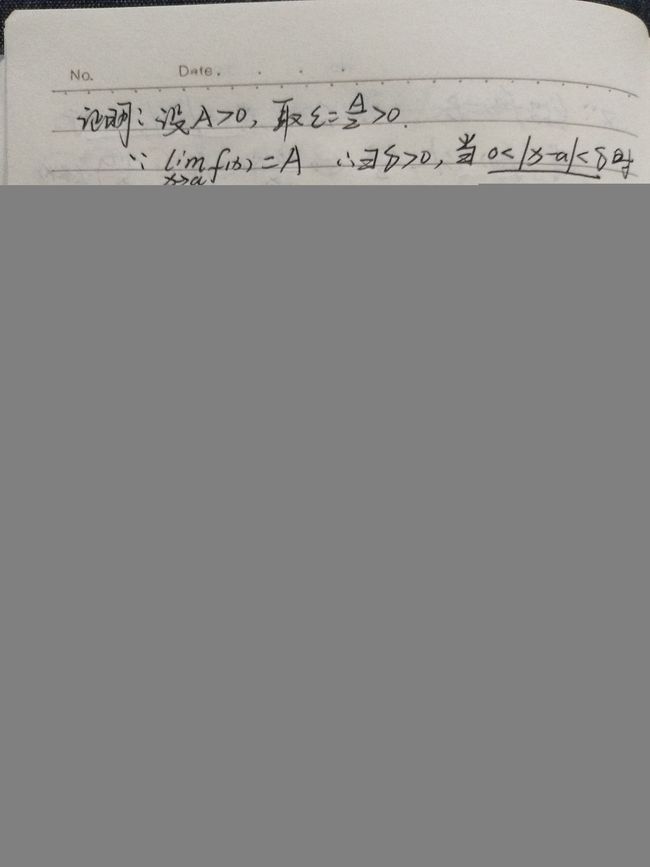 No. Date.
证明：设A>0，取ε=A/2>0.
∵ lim x→a f(x)=A ∴∃δ>0，当 0<|x-a|<δ时